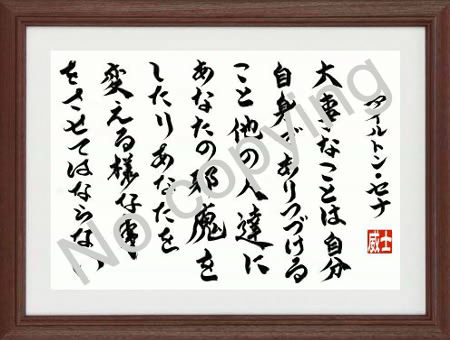 アイルトン・セナ
大事なことは自分
自身でありつづける
こと他の人達に
あなたの邪魔を
したりあなたを
変える様な事
をさせてはならない
士威
No copying